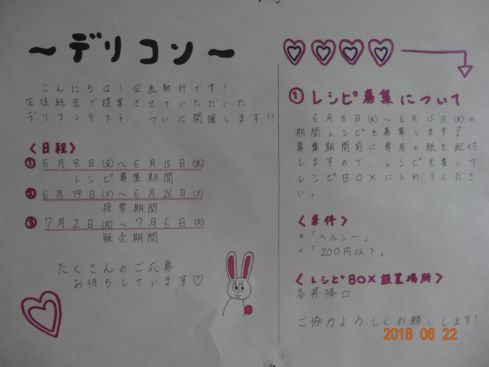 ～デリコン～
こんにちは！企画執行です！
生徒総会で提案させていただいた
デリコンテスト、ついに開催します!!
〈日程〉
① 6月8日(金)～6月15日(金)
レシピ募集期間
② 6月19日(火)～6月26日(火)
投票期間
③ 7月2日(月)～7月6日(金)
販売期間
たくさんのご応募
お待ちしています♡
① レシピ募集について
6月8日(金)～6月15日(金)の
期間レシピを募集します！
募集期間前に専用の紙を配付
しますので、レシピを書いて
レシピBOXに入れてくださ
い。
〈条件〉
。「ヘルシー」
。「200円以下」
〈レシピBOX設置場所〉
各昇降口
ご協力よろしくお願いします!
2018 06 22